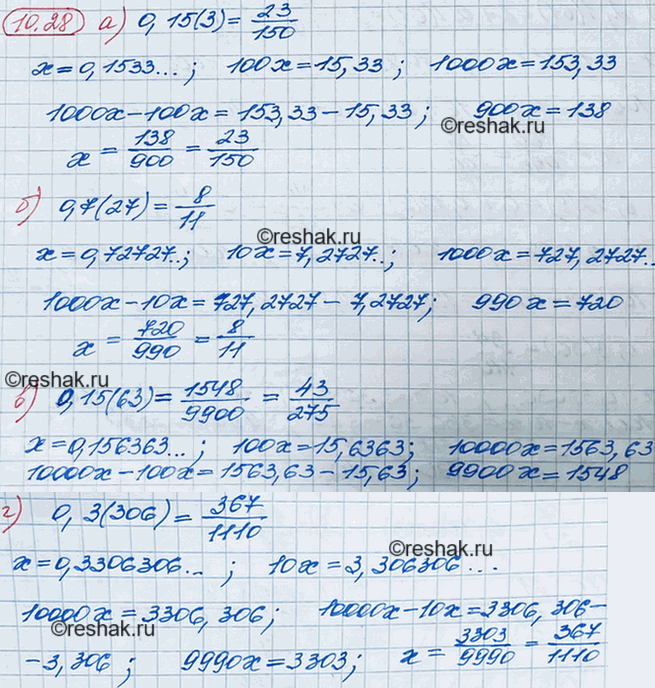 10.28 а) 0,15(3) = 23/150
x = 0,1533...; 100x = 15,33; 1000x = 153,33
1000x - 100x = 153,33 - 15,33; 900x = 138
©reshak.ru
x = 138/900 = 23/150
б) 0,7(27) = 8/11
©reshak.ru
x = 0,72727..; 10x = 7,2727..; 1000x = 727,2727..
1000x - 10x = 727,2727 - 7,2727; 990x = 720
x = 720/990 = 8/11
©reshak.ru
в) 0,15(63) = 1548/9900 = 43/275
x = 0,156363...; 100x = 15,6363; 10000x = 1563,63
10000x - 100x = 1563,63 - 15,63; 9900x = 1548
г) 0,3(306) = 367/1110
©reshak.ru
x = 0,3306306...; 10x = 3,306306...
10000x = 3306,306; 10000x - 10x = 3306,306 -
©reshak.ru
- 3,306; 9990x = 3303; x = 3303/9990 = 367/1110